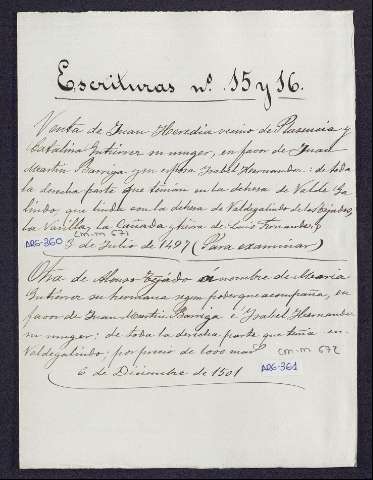 Escrituras nº. 15 y 16.
Venta de Juan Heredia vecino de Plasencia y
Catalina Gutierrez su muger, en favor de Juan
Martin Barriga y su esposa Ysabel Hernandez: de toda
la derecha parte que tenian en la dehesa de Valde Ga-
lindo, que linda con la dehesa de Valdegalindo de los
la Varilla, la Cañada, y tierra de Luis Fernandez
ARG-360 CM-M 671
3 de Julio de 1497 (Para examinar)
Otra de Alonso Tejado á nombre de Maria
Gutierrez su hermana segun poder que acompaña, en
favor de Juan Martin Barriga é Ysabel Hernandez
su muger: de toda la derecha parte que tenia en
Valdegalindo; por precio de 6000 mars. CM-M 672
6 de Diciembre de 1501 ARG-361